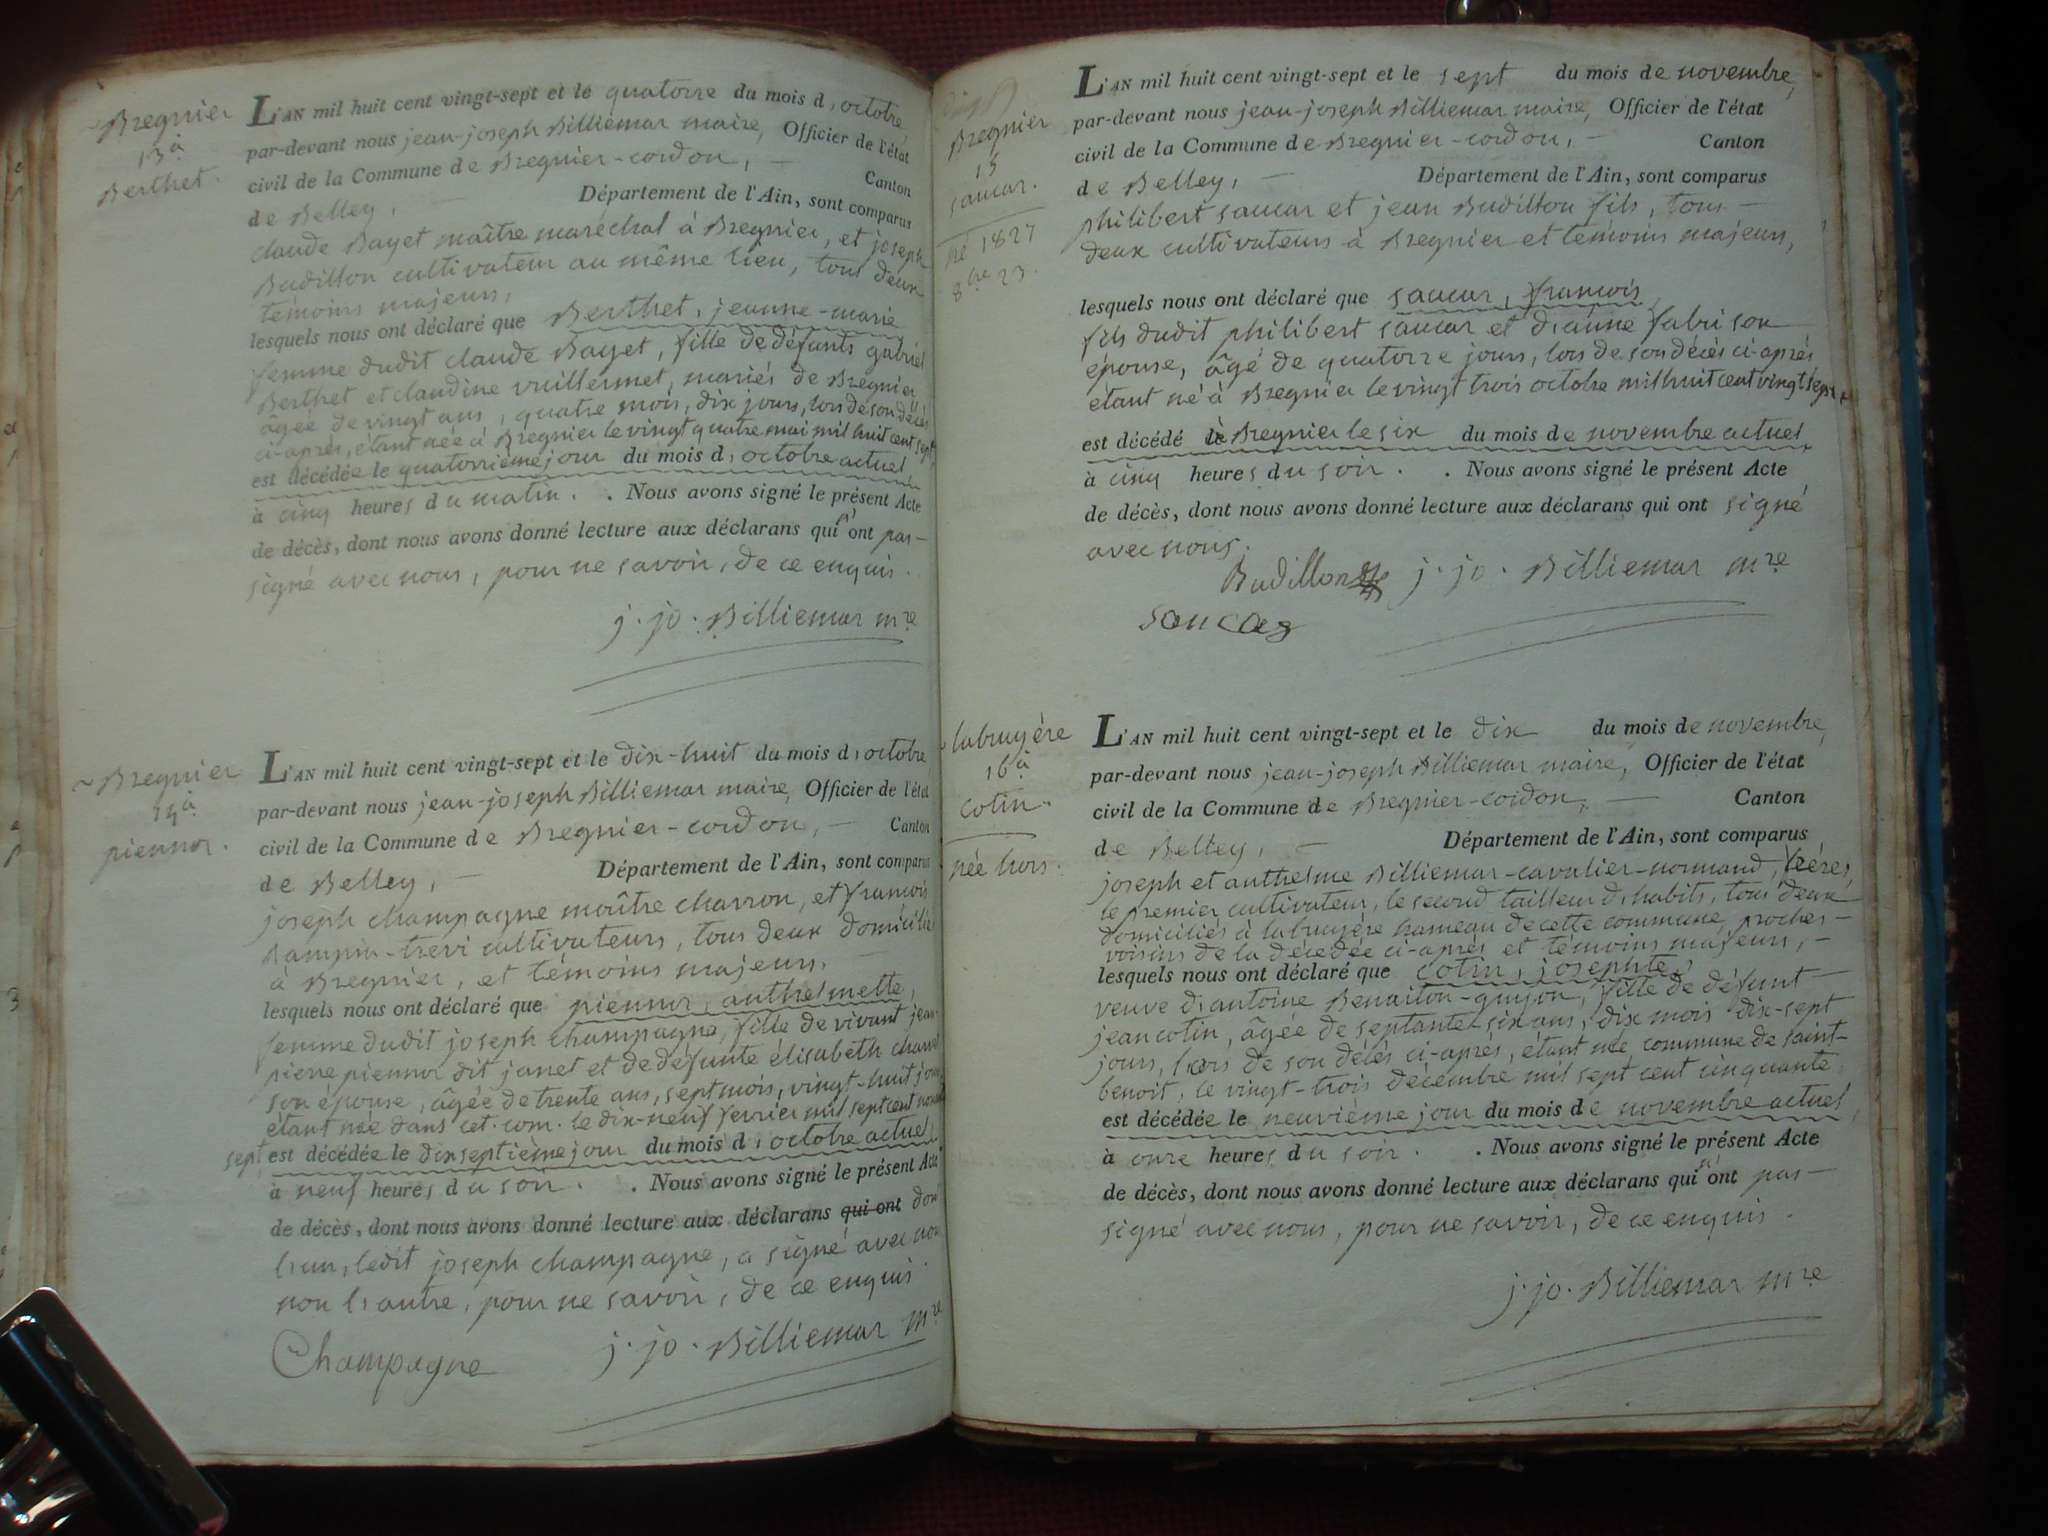 Bregnier
13à
Berthet.
L'AN mil huit cent vingt-sept et le quatorze du mois d'octobre
par-devant nous jean-joseph Billiemar maire, Officier de l'état
civil de la Commune de Bregnier-cordon, Canton
de Belley, Département de l'Ain, sont comparus
claude Bayet maître maréchal à Bregnier, et joseph
Budillon cultivateur au même lieu, tous deux
témoins majeurs,
lesquels nous ont déclaré que Berthet, jeanne-marie
femme dudit claude Bayet, fille de défunts gabriel
Berthet et claudine vuillermet, mariés de Bregnier
âgée de vingt ans, quatre mois, dix jours, lors de son décès
ci-après, étant née à Bregnier le vingt quatre mai mil huit cent sept,
est décédée le quatorzième jour du mois d'octobre actuel,
à cinq heures du matin. . Nous avons signé le présent Acte
de décès, dont nous avons donné lecture aux déclarans qui n'ont pas
signé avec nous, pour ne savoir, de ce enquis.
j. jo. Billiemar mre
~ Bregnier
14à
piennor.
L'AN mil huit cent vingt-sept et le dix-huit du mois d'octobre
par-devant nous jean-joseph Billiemar maire, Officier de l'état
civil de la Commune de Bregnier-cordon, Canton
de Belley, Département de l'Ain, sont comparus
joseph champagne maître charron, et francois
trevi cultivateurs, tous deux domiciliés
à Bregnier, et témoins majeurs,
lesquels nous ont déclaré que piennor, anthelmette,
femme dudit joseph champagne, fille de vivant jean-
pierre piennor dit janet et de défunte élisabeth
son épouse, âgée de trente ans, sept mois, vingt-huit jours
étant née dans cet. com. le dix-neuf fevrier mil sept cent
sept, est décédée le dixseptième jour du mois d'octobre actuel,
à neuf heures du soir. . Nous avons signé le présent Acte
de décès, dont nous avons donné lecture aux déclarans qui ont dont
l'un, ledit joseph champagne, a signé avec nous
non l'autre, pour ne savoir, de ce enquis.
Champagne j. jo. Billiemar mre
Bregnier
15
saucar.
né 1827
8bre 23.
L'AN mil huit cent vingt-sept et le sept du mois de novembre,
par-devant nous jean-joseph Billiemar maire, Officier de l'état
civil de la Commune de Bregnier-cordon, Canton
de Belley, Département de l'Ain, sont comparus
philibert saucar et jean Budillon fils, tous
deux cultivateurs à Bregnier et témoins majeurs,
lesquels nous ont déclaré que saucar, francois
fils dudit philibert saucar et d'anne fabri son
épouse, âgé de quatorze jours, lors de son décès ci-après
étant né à Bregnier le vingt trois octobre mil huit cent vingt sept,
est décédé à Bregnier le six du mois de novembre actuel,
à cinq heures du soir. . Nous avons signé le présent Acte
de décès, dont nous avons donné lecture aux déclarans qui ont signé
avec nous.
Budillon j. jo. Billiemar mre
saucar
labruyère
16à
cotin.
née hors.
L'AN mil huit cent vingt-sept et le dix du mois de novembre,
par-devant nous jean-joseph Billiemar maire, Officier de l'état
civil de la Commune de Bregnier-cordon, Canton
de Belley, Département de l'Ain, sont comparus
joseph et anthelme Billiemar-cavalier-normand, frères,
le premier cultivateur, le second tailleur d'habits, tous deux
domiciliés à labruyère hameau de cette commune, proches
voisins de la décédée ci-après et témoins majeurs,
lesquels nous ont déclaré que cotin, josephte,
veuve d'antoine Benaiton-guyon, fille de défunt
jean cotin, âgée de septante-six ans, dix mois dix-sept
jours, lors de son décès ci-après, étant née commune de saint-
benoit, le vingt-trois décembre mil sept cent cinquante,
est décédée le neuvième jour du mois de novembre actuel,
à onze heures du soir. . Nous avons signé le présent Acte
de décès, dont nous avons donné lecture aux déclarans qui n'ont pas
signé avec nous, pour ne savoir, de ce enquis.
j. jo. Billiemar mre